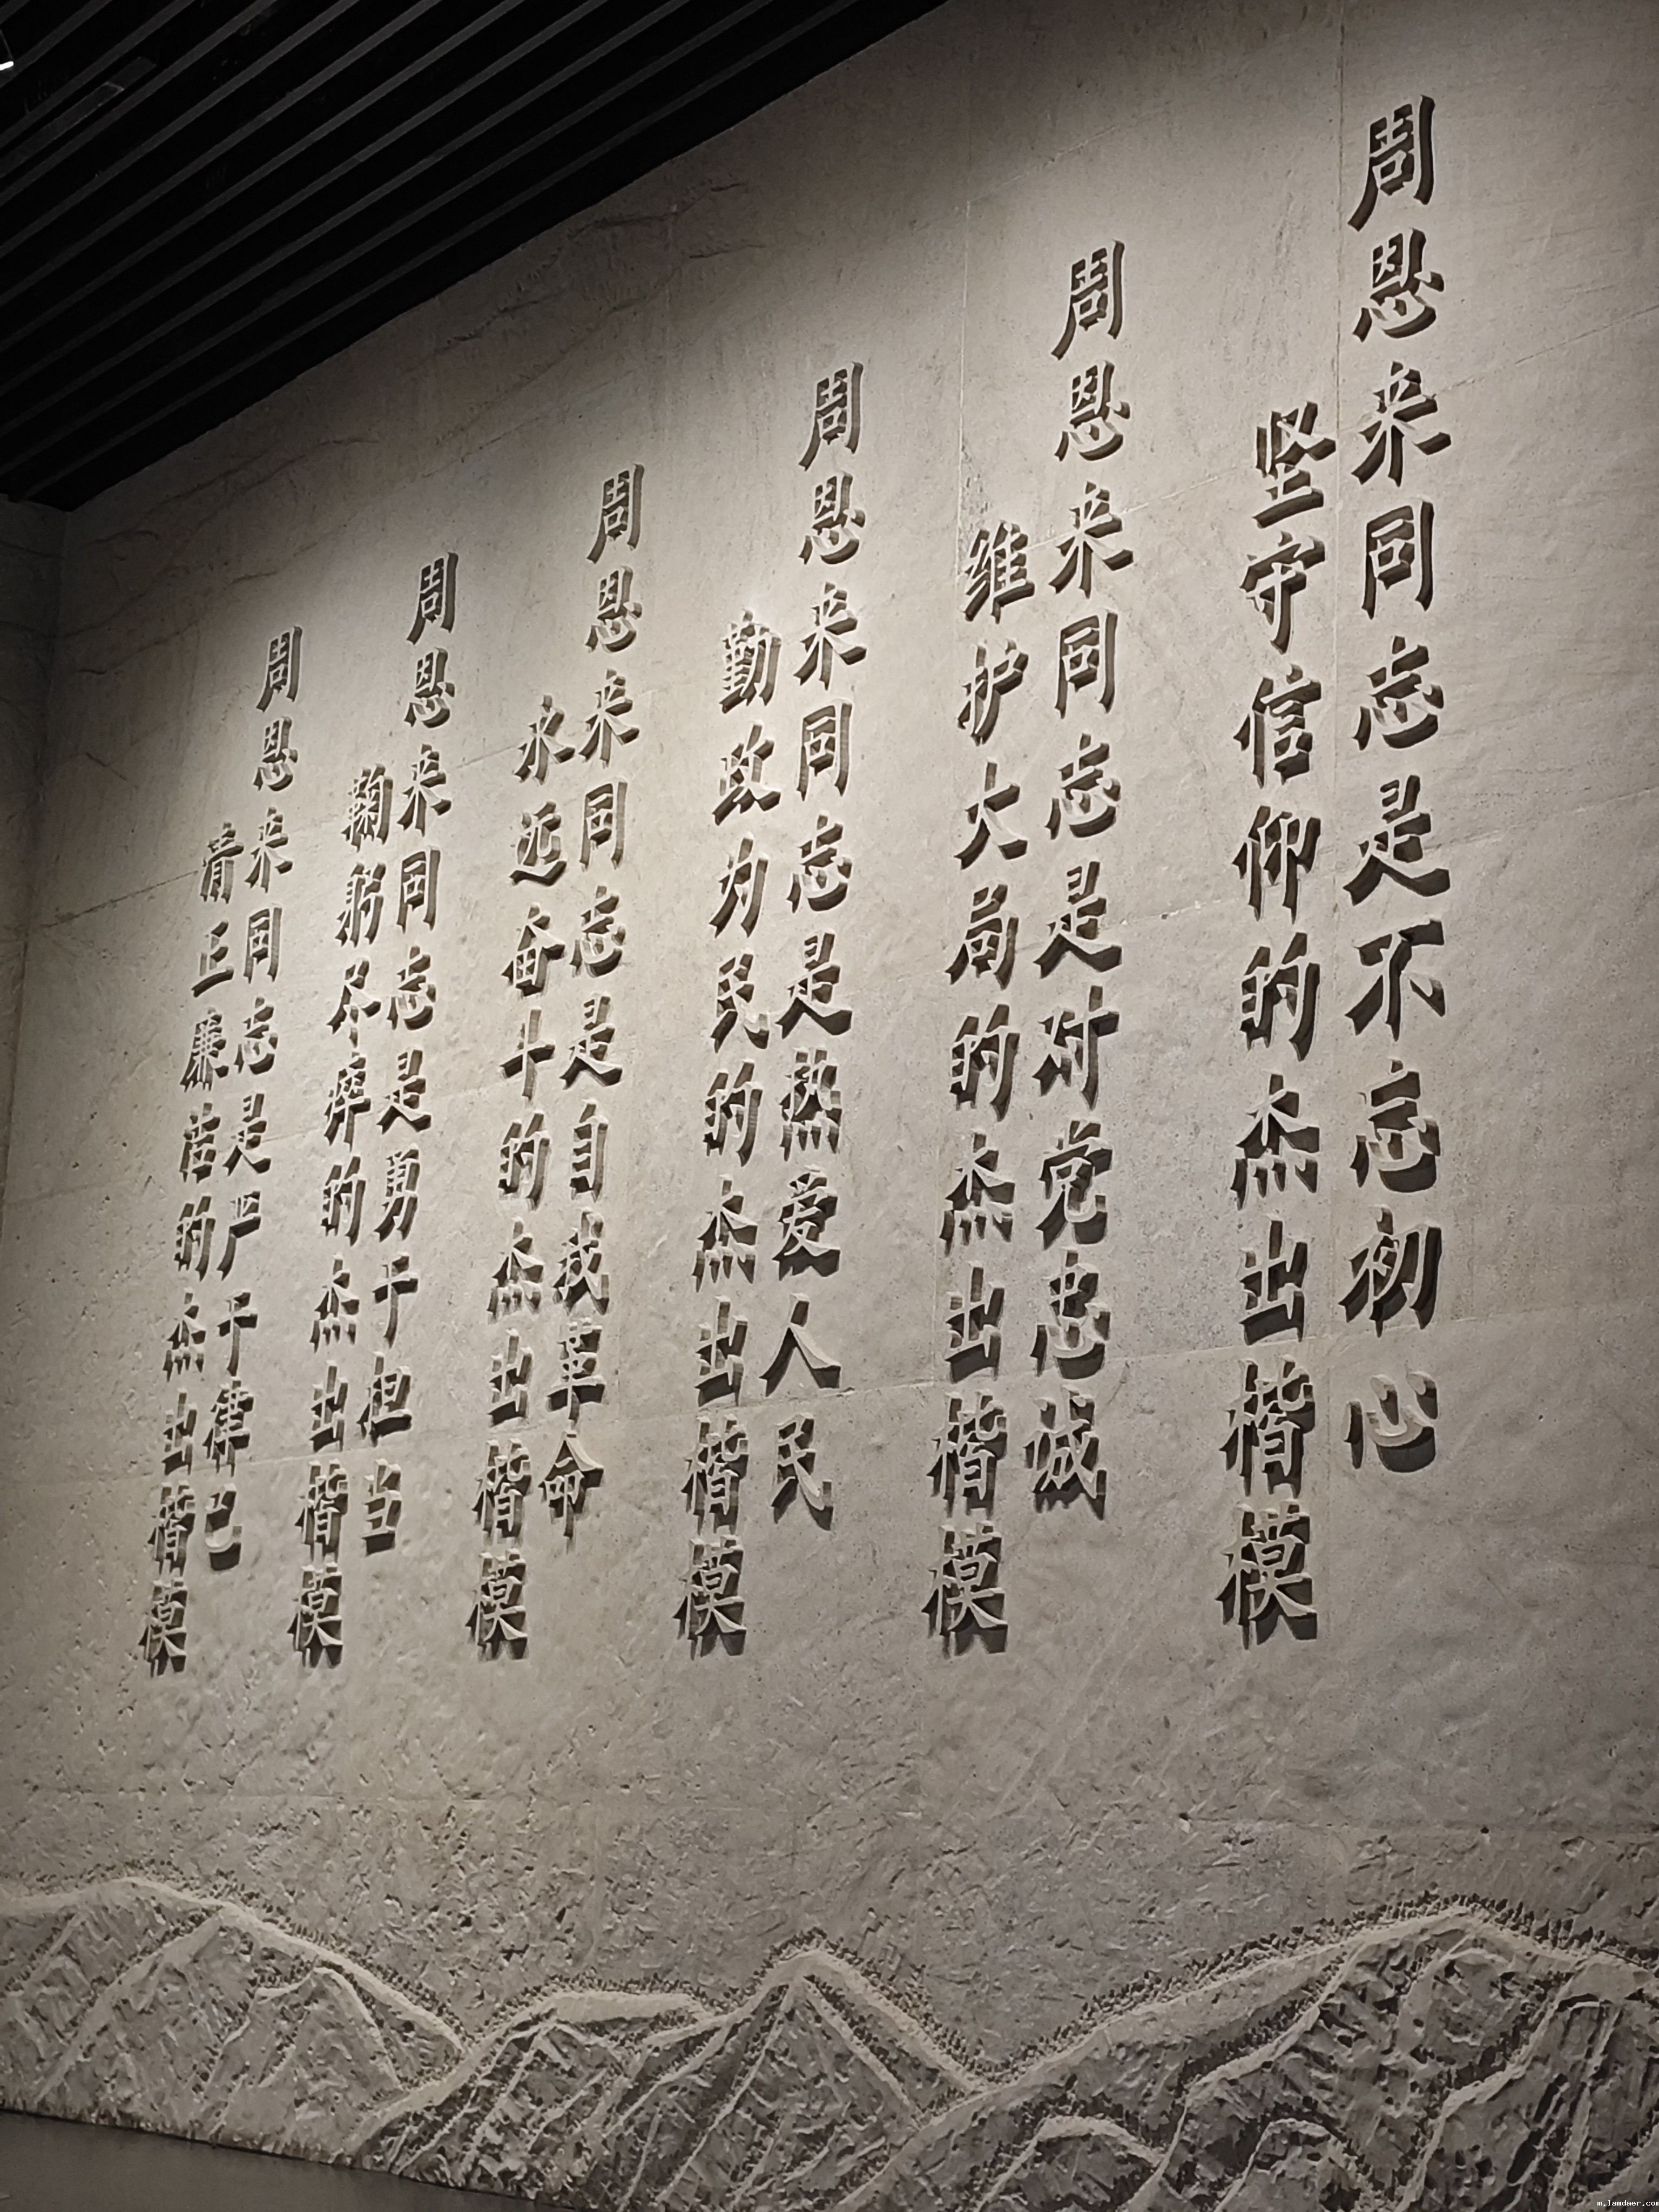 周恩来同志是不忘初心
坚守信仰的杰出楷模
周恩来同志是对党忠诚
维护大局的杰出楷模
周恩来同志是热爱人民
勤政为民的杰出楷模
周恩来同志是自我革命
永远奋斗的杰出楷模
周恩来同志是勇于担当
鞠躬尽瘁的杰出楷模
周恩来同志是严于律己
清正廉洁的杰出楷模
m.lamdaer.com